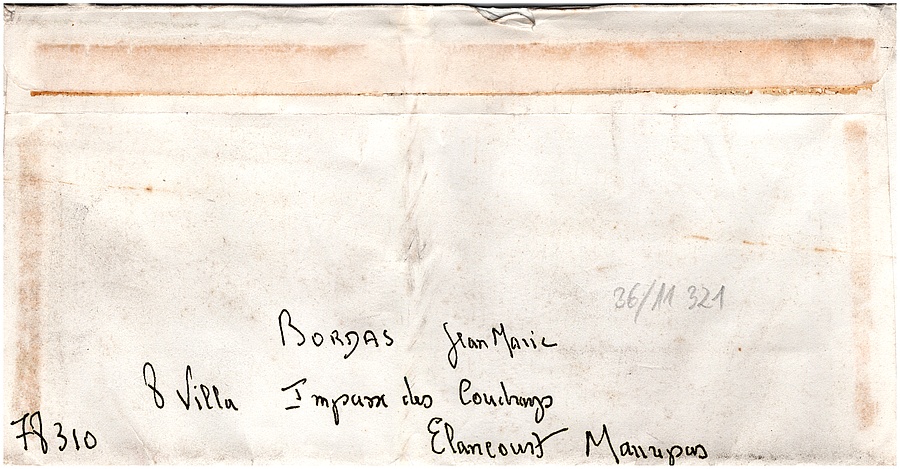 36/11 321
BORDAS Jean Marie
8 Villa Impasse des
78310 Elancourt Maurepas